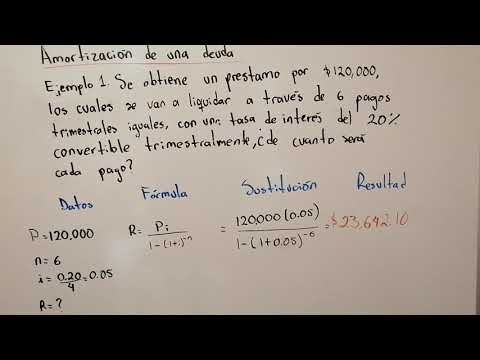 Amortización de una deuda
Ejemplo 1. Se obtiene un prestamo por $120,000,
los cuales se van a liquidar a través de 6 pagos
trimestrales iguales, con una tasa de interés del 20%
convertible trimestralmente, ¿de cuanto será
cada pago?
Datos Fórmula Sustitución Resultad
P=120,000 R= Pi / 1-(1+i)^-n = 120,000(0.05) / 1-(1+0.05)^-6 = $23,642.10
n=6
i= 0.20/4 =0.05
R= ?